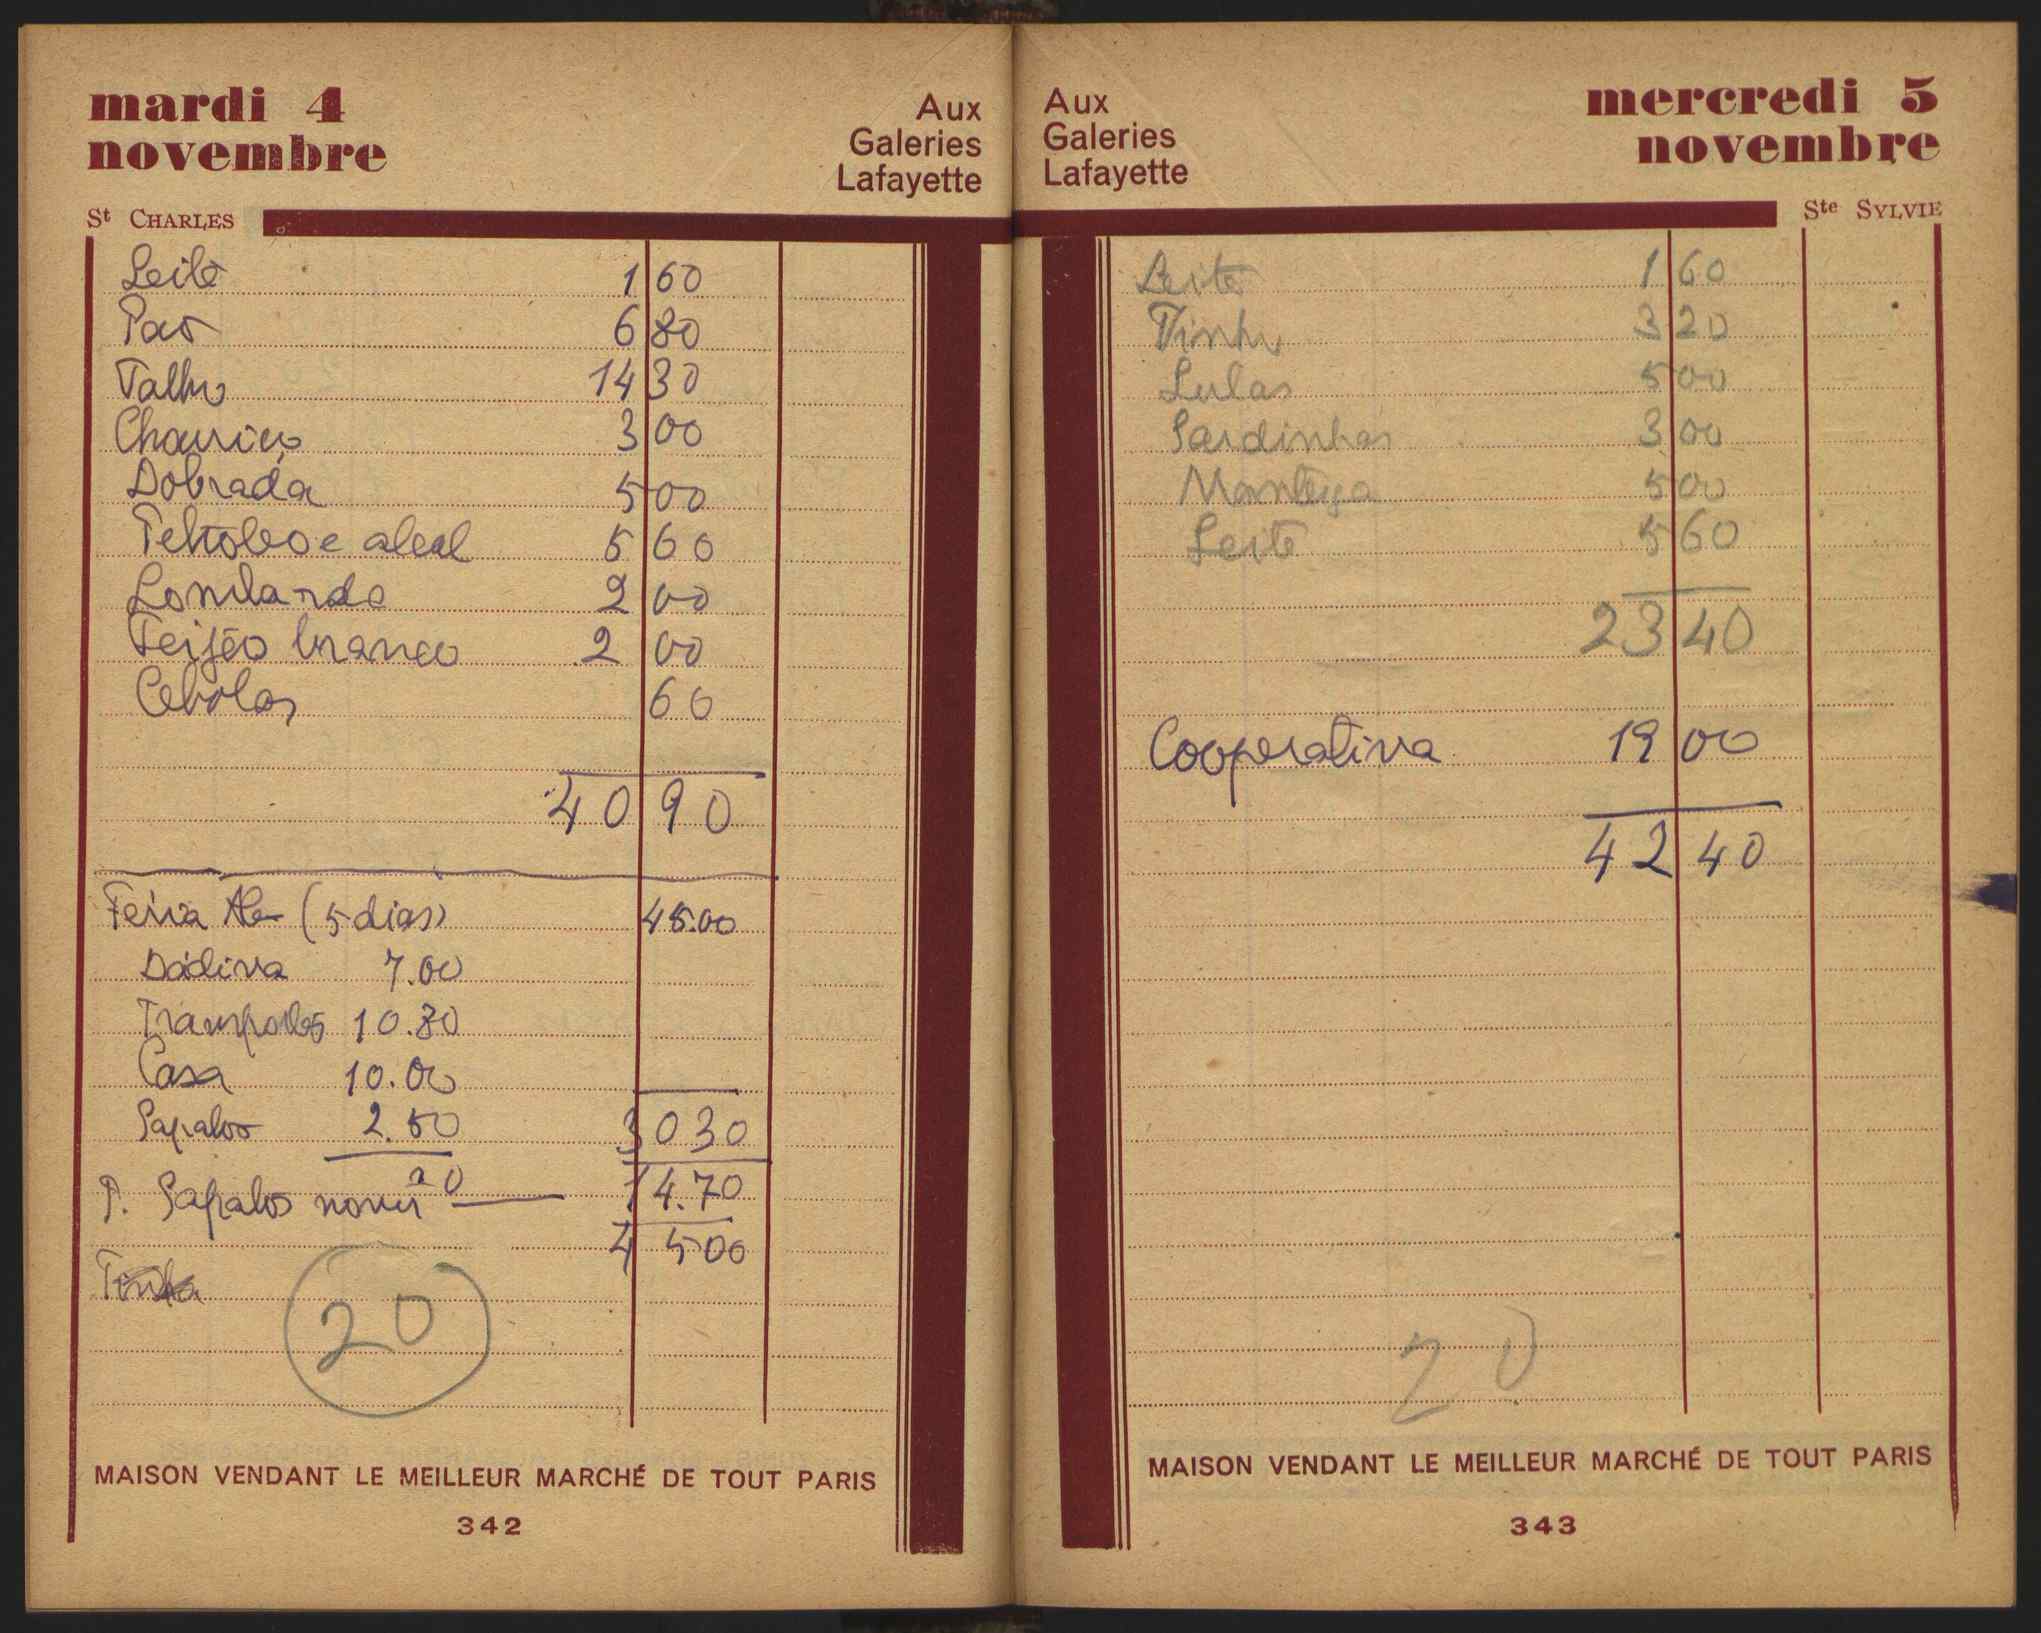 mardi 4
novembre
Aux
Galeries
Lafayette
St CHARLES
Leite 1 60
Pao 6 80
Talho 14 30
Chouriço 3 00
Dobrada 5 00
Petroleo e alcol 5 60
Lombardo 2 00
Feijão branco 2 00
Cebolas 60
40 90
Feria (5 dias) 45.00
Dádiva 7.00
Transportes 10.80
Casa 10.00
Sapatos 2.50
30 30
P. Sapatos 20 14.70
4 500
20
MAISON VENDANT LE MEILLEUR MARCHÉ DE TOUT PARIS
342
Aux
Galeries
Lafayette
mercredi 5
novembre
Ste SYLVIE
Leite 1 60
Vinho 3 20
Lulas 5 00
Sardinhas 3 00
Manteiga 5 00
Leite 5 60
23 40
Cooperativa 19 00
42 40
20
MAISON VENDANT LE MEILLEUR MARCHÉ DE TOUT PARIS
343